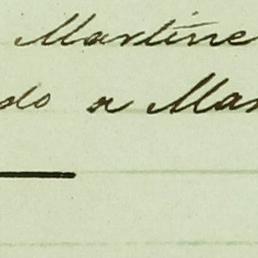 Martine
do a Mar